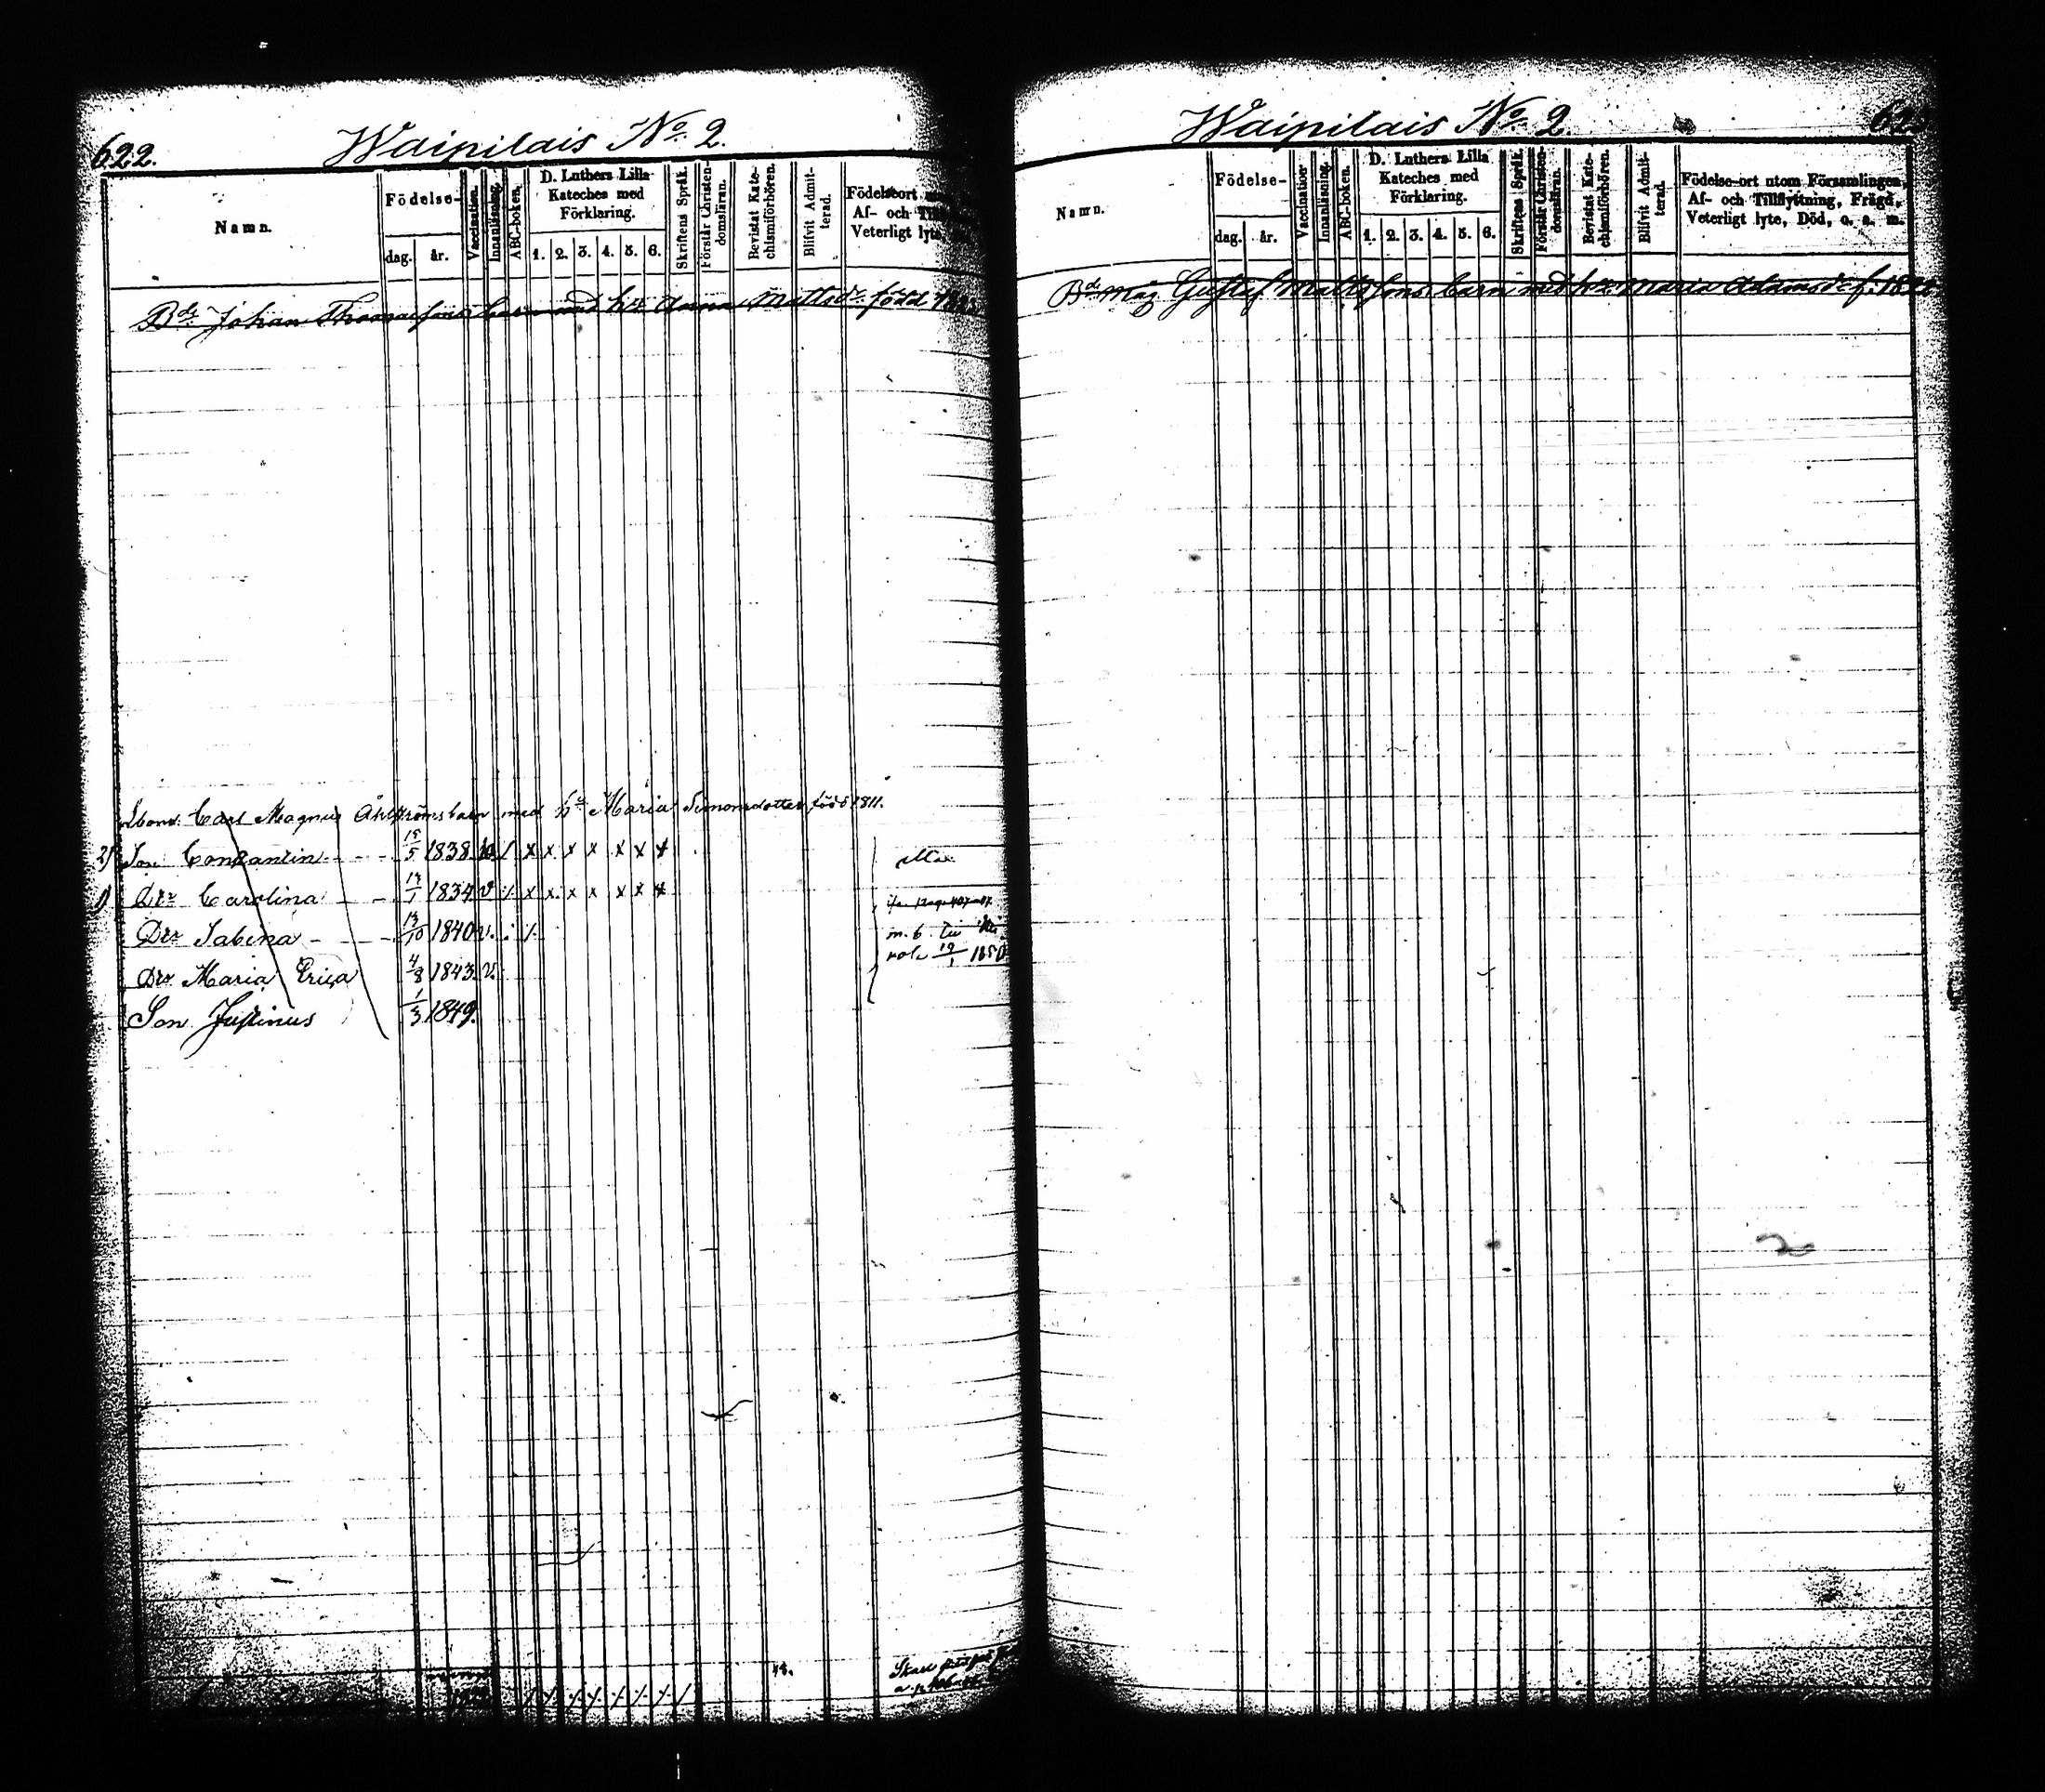 622.
Waipilais No. 2.
Namn.
Födelse-
dag. år.
Vaccination.
Innanläsning.
ABC-boken.
D. Luthers Lilla
Kateches med
Förklaring.
1. 2. 3. 4. 5. 6.
Skriftens Språk.
Förstår Christen-
domsläran.
Bevistat Kate-
chismiförhören.
Blifvit Admit-
terad.
Födelseort
Af- och
Veterligt lyte
Bds Johan Thomassons barn med h:u Anna Mattsdr född
Carl Magnus Åhlströms barn med h: Maria Simonsdotter född 1811.
2) Son Constantin 15/5 1838. / x x x x x x x
1) Dr Carolina 1834 v x x x x x x x
Dr Sabina 1840 v.
Dr Maria Erica 4/8 1843. v.
m. b.
19/1 1850
Son Justinus 1/3 1849.
Waipilais No. 2
Namn.
Födelse-
dag. år.
Vaccination
Innanläsning.
ABC-boken.
D. Luthers Lilla
Kateches med
Förklaring.
1. 2. 3. 4. 5. 6.
Skriftens Språk.
Förstår Christen-
domsläran.
Bevistat Kate-
chismiförhören.
Blifvit Admit-
terad.
Födelse-ort utom Församlingen,
Af- och Tillflyttning, Frägd,
Veterligt lyte, Död, o. a. m.
Bd måg Gustaf Mattssons barn med h:u Maria Adamsd f.